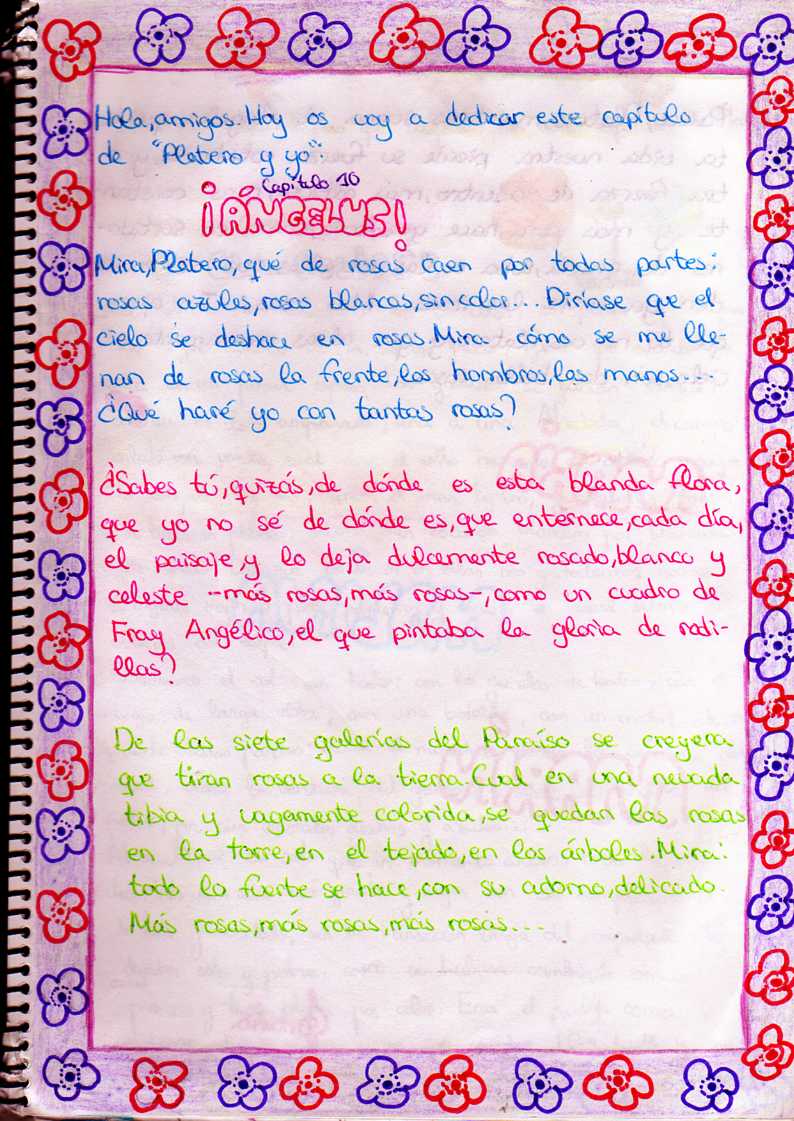 Hola, amigos: Hoy os voy a dedicar este capítulo
de "Platero y yo":
Capítulo 10
¡ÁNGELUS!
Mira, Platero, qué de rosas caen por todas partes:
rosas azules, rosas blancas, sin color... Diríase que el
cielo se deshace en rosas. Mira cómo se me lle-
nan de rosas la frente, los hombros, las manos...
¿Qué haré yo con tantas rosas?
¿Sabes tú, quizás, de dónde es esta blanda flora,
que yo no sé de dónde es, que enternece, cada día,
el paisaje, y lo deja dulcemente rosado, blanco y
celeste -más rosas, más rosas-, como un cuadro de
Fray Angélico, el que pintaba la gloria de rodi-
llas?
De las siete galerías del Paraíso se creyera
que tiran rosas a la tierra. Cual en una nevada
tibia y vagamente colorida, se quedan las rosas
en la torre, en el tejado, en los árboles. Mira:
todo lo fuerte se hace, con su adorno, delicado.
Más rosas, más rosas, más rosas...